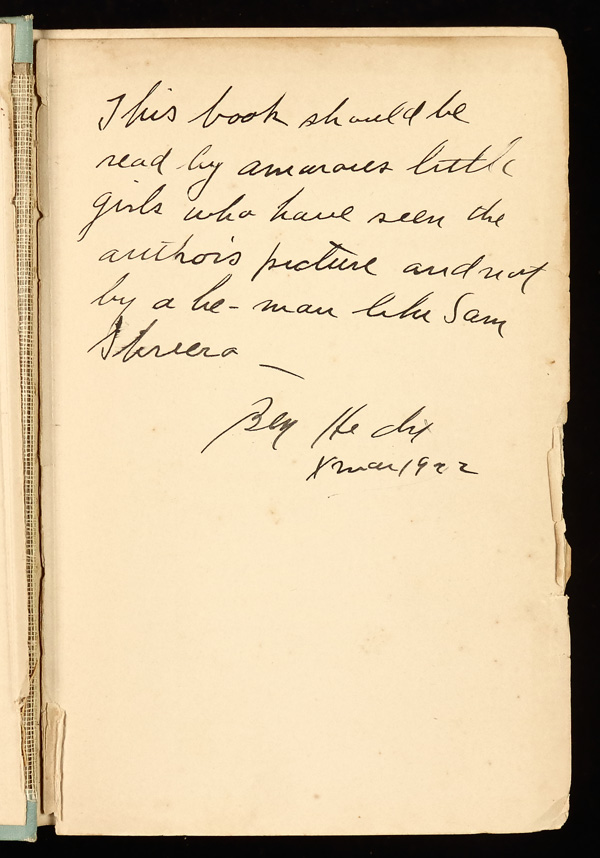 This book should be
read by amorous little
girls who have seen the
author's picture and not
by a he-man like Sam
—
Ben Hecht
Xmas 1922